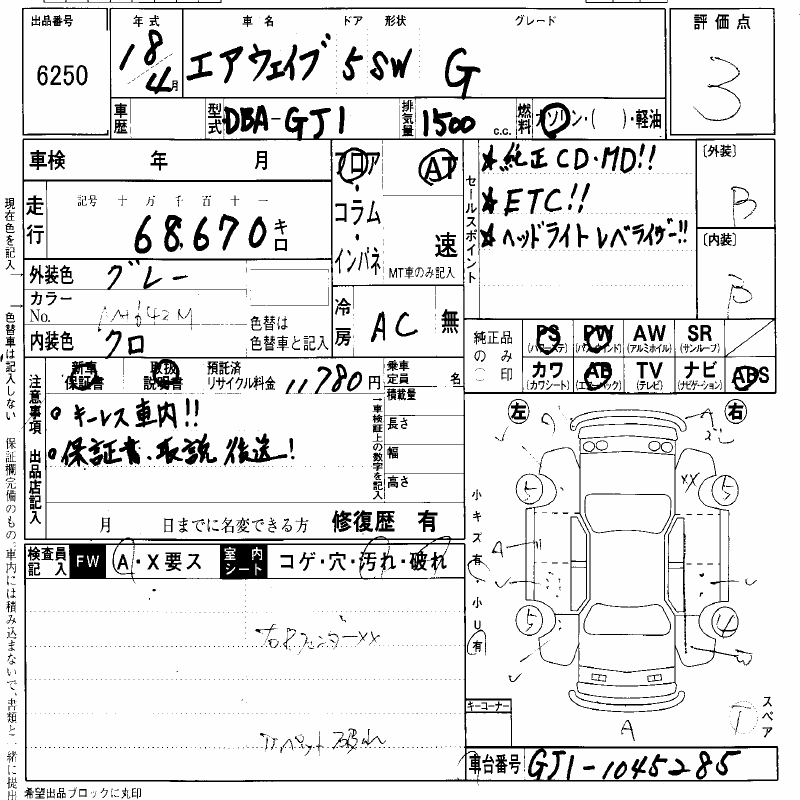 出品番号 年式 車名 ドア 形状 グレード 評価点
6250 18/4月 エアウェイブ 5 SW G 3
車歴 型式 DBA-GJ1 排気量 1500 c.c. 燃料 ガソリン・( )・軽油
車検 年 月 フロア AT
コラム・インパネ 速 MT車のみ記入
走行 記号 十 万 千 百 十 一
68,670 キロ
外装色 グレー
カラーNo. NH642M
色替は 色替車と記入
内装色 クロ
冷房 AC 無
セールスポイント
★純正CD・MD!!
★ETC!!
★ヘッドライトレベライザー!!
〔外装〕 B
〔内装〕 B
純正品のみ○印
PS (パワーステ) PW (パワーウインド) AW (アルミホイル) SR (サンルーフ)
カワ (カワシート) AB (エアーバック) TV (テレビ) ナビ (ナビゲーション) ABS
新車保証書 取扱説明書 預託済リサイクル料金 11,780円
乗車定員 名
積載量
長さ
幅
高さ
→車検証上の数字を記入
注意事項 出品店記入
○キーレス車内!!
○保証書、取説 後送!
月 日までに名変できる方 修復歴 有
検査員記入 FW A・X要ス 室内シート コゲ・穴・汚れ・破れ
右Rフェンダーxx
カペット破れ
左 右
A
5 5 xx
A
5 4
A
小キズ有・小U有
キーコーナー
T スペア
車台番号 GJ1-1045285
希望出品ブロックに丸印
現在色を記入
色替車は記入しない
保証欄完備のもの。車内には積み込まないで、書類と一緒に提出